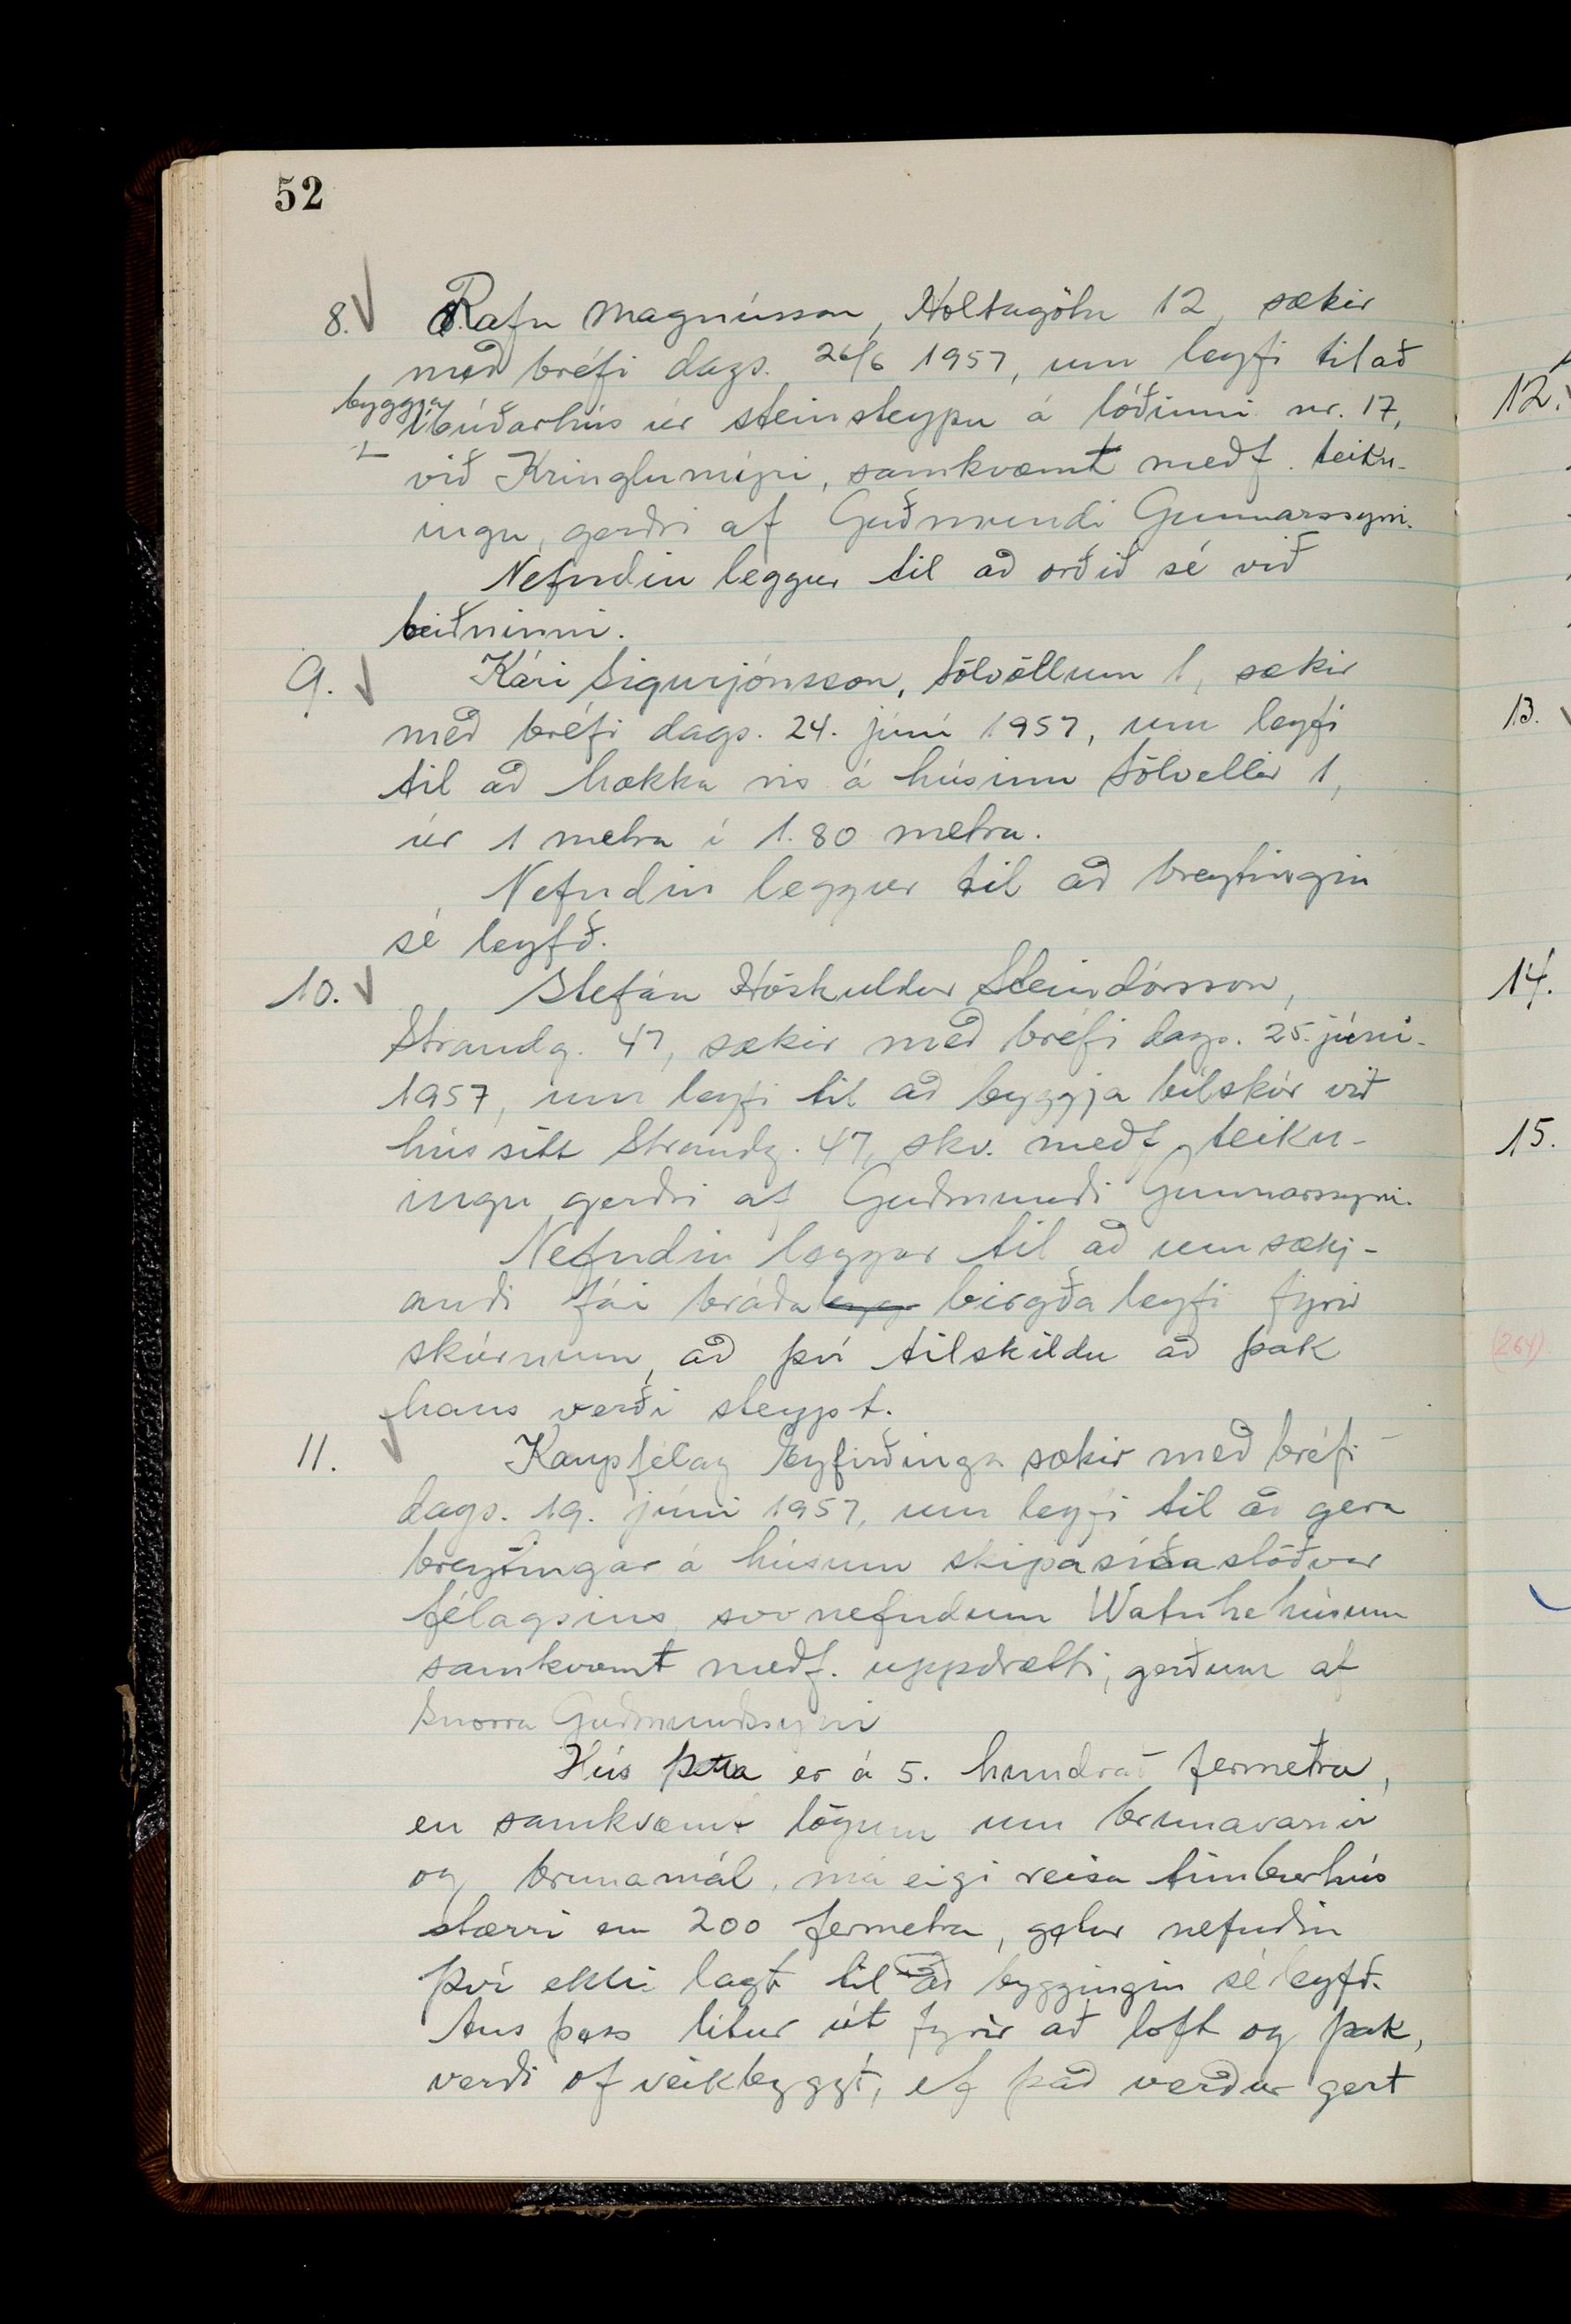 52
8. Rafn Magnússon, Holtagötu 12, sækir
með bréfi dags. 26/6 1957, um leyfi til að
byggja íbúðarhús úr steinsteypu á lóðinni nr. 17,
við Kringlumýri, samkvæmt meðf. teikn-
ingu, gerðri af Guðmundi Gunnarssyni.
Nefndin leggur til að orðið sé við
beiðninni.
9. Kári Sigurjónsson, Sólvöllum 1, sækir
með bréfi dags. 24. júní 1957, um leyfi
til að hækka ris á húsinu Sólvellir 1,
úr 1 metra í 1.80 metra.
Nefndin leggur til að breytingin
sé leyfð.
10. Stefán Höskuldur Steindórsson,
Strandg. 47, sækir með bréfi dags. 25. júní.
1957, um leyfi til að byggja bílskúr við
hús sitt Strandg. 47, skv. meðf. teikn-
ingu gerðri af Guðmundi Gunnarssyni.
Nefndin leggur til að umsækj-
andi fái bráðabirgða leyfi fyrir
skúrnum, að því tilskildu að þak
hans verði steypt.
11. Kaupfélag Eyfirðinga sækir með bréfi
dags. 19. júní 1957, um leyfi til að gera
breytingar á húsum skipasmíðastöðvar
félagsins, svonefndum Watnhehúsum
samkvæmt meðf. uppdrætti, gerðum af
Snorra Guðmundssyni
Hús þetta er á 5. hundrað fermetra,
en samkvæmt lögum um brunavarnir
og brunamál, má eigi reisa timburhús
stærri en 200 fermetra, getur nefndin
því ekki lagt til að byggingin sé leyfð.
Auk þess lítur út fyrir að loft og þak,
verði of veikbyggt, ef það verður gert
12.
13.
14.
15.
(264)